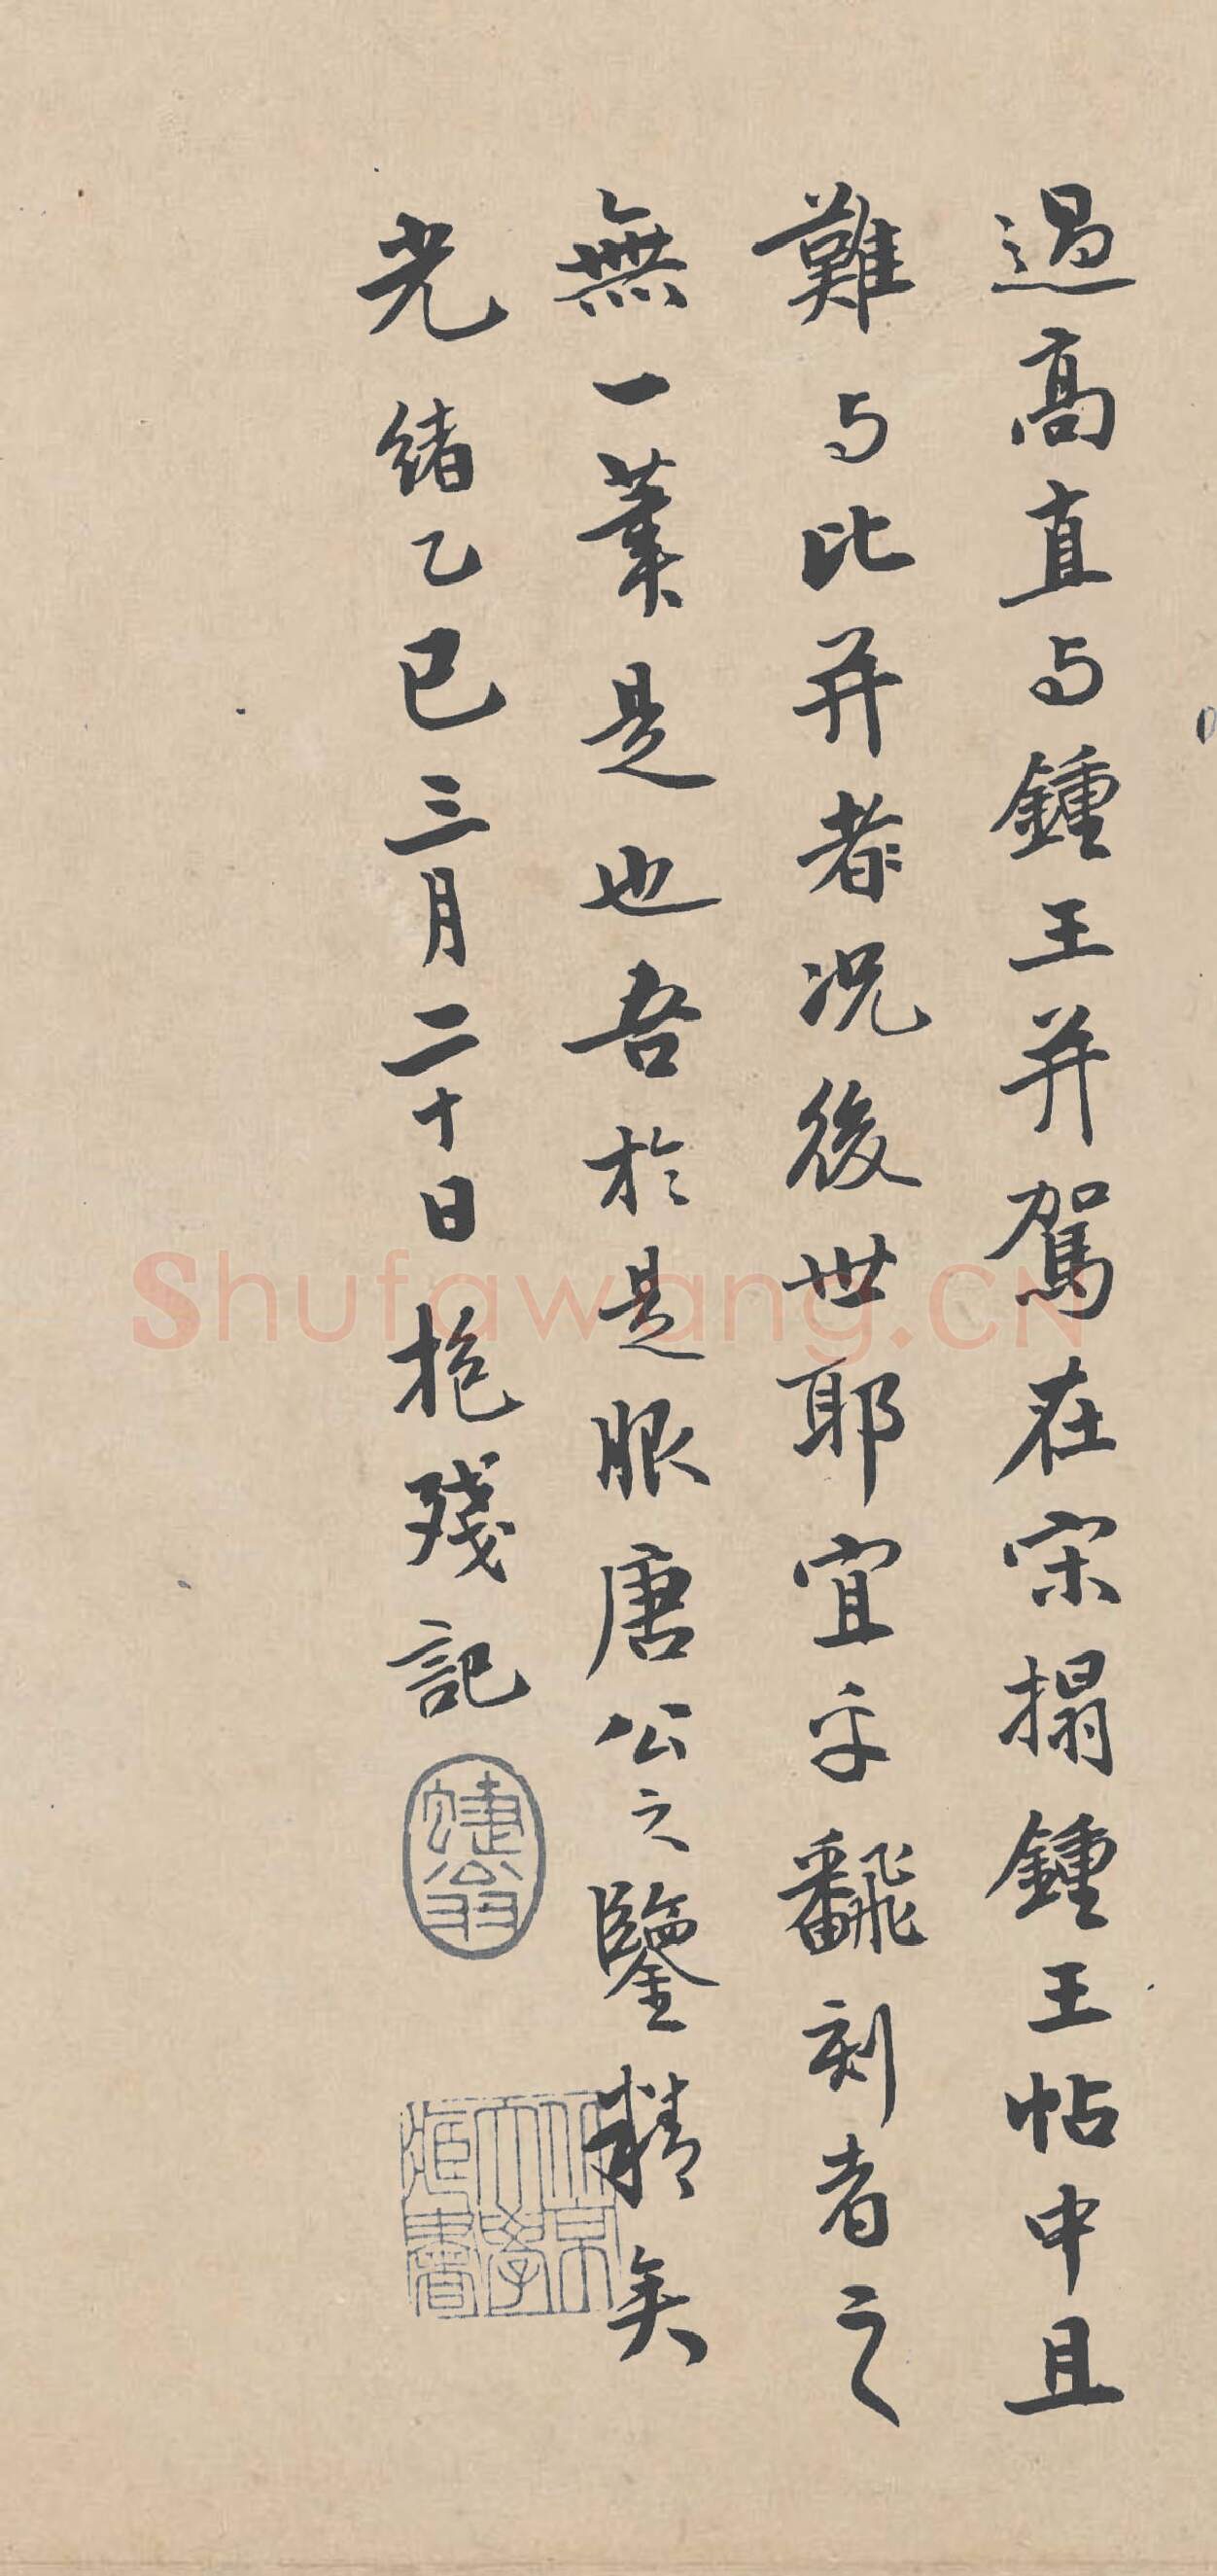 過高直与鍾王并駕在宋搨鍾王帖中且
難与比并者况後世耶宜乎飜刻者之
無一筆是也吾於是服唐公之鑒精矣
光緒乙巳三月二十日抱殘記
北京大學藏書
Shufawang.CN